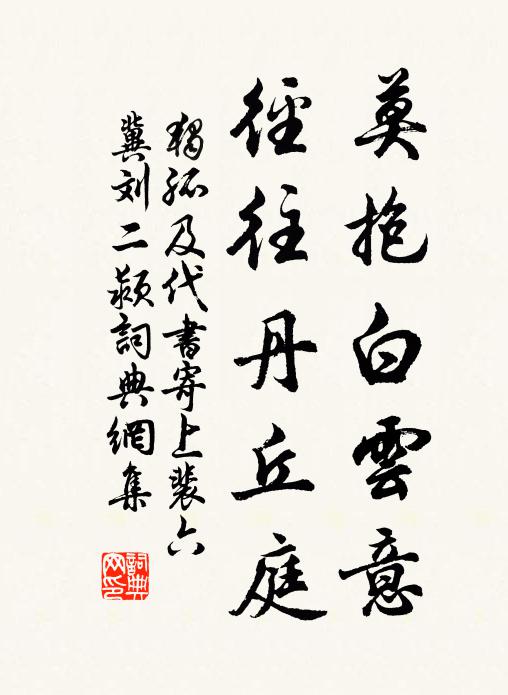 莫抱白雲意
徑往丹丘庭
獨孤及代書寄上裴六
冀刘二颍詞典網集
詞典网印